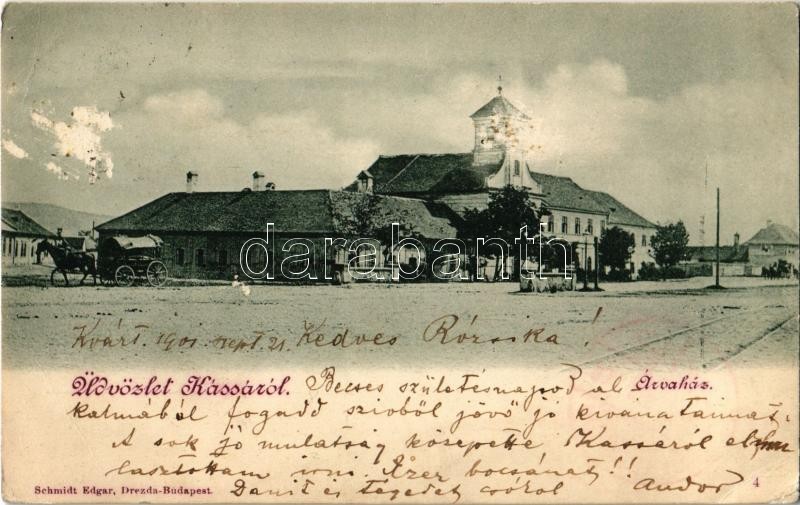 darabanth
Kvárt. 1901 sept 21. Kedves Rózsika!
Üdvözlet Kassáról.
Árvaház.
Becses születésnapod al
kalmából fogadd szivből jövő jó kivánataimat.
A sok jó mulatság közepette Kassáról el
lasztottam irni. Ezer bocsánat!!
Danit és Tégedet csókol Andor
Schmidt Edgar, Drezda-Budapest.
4